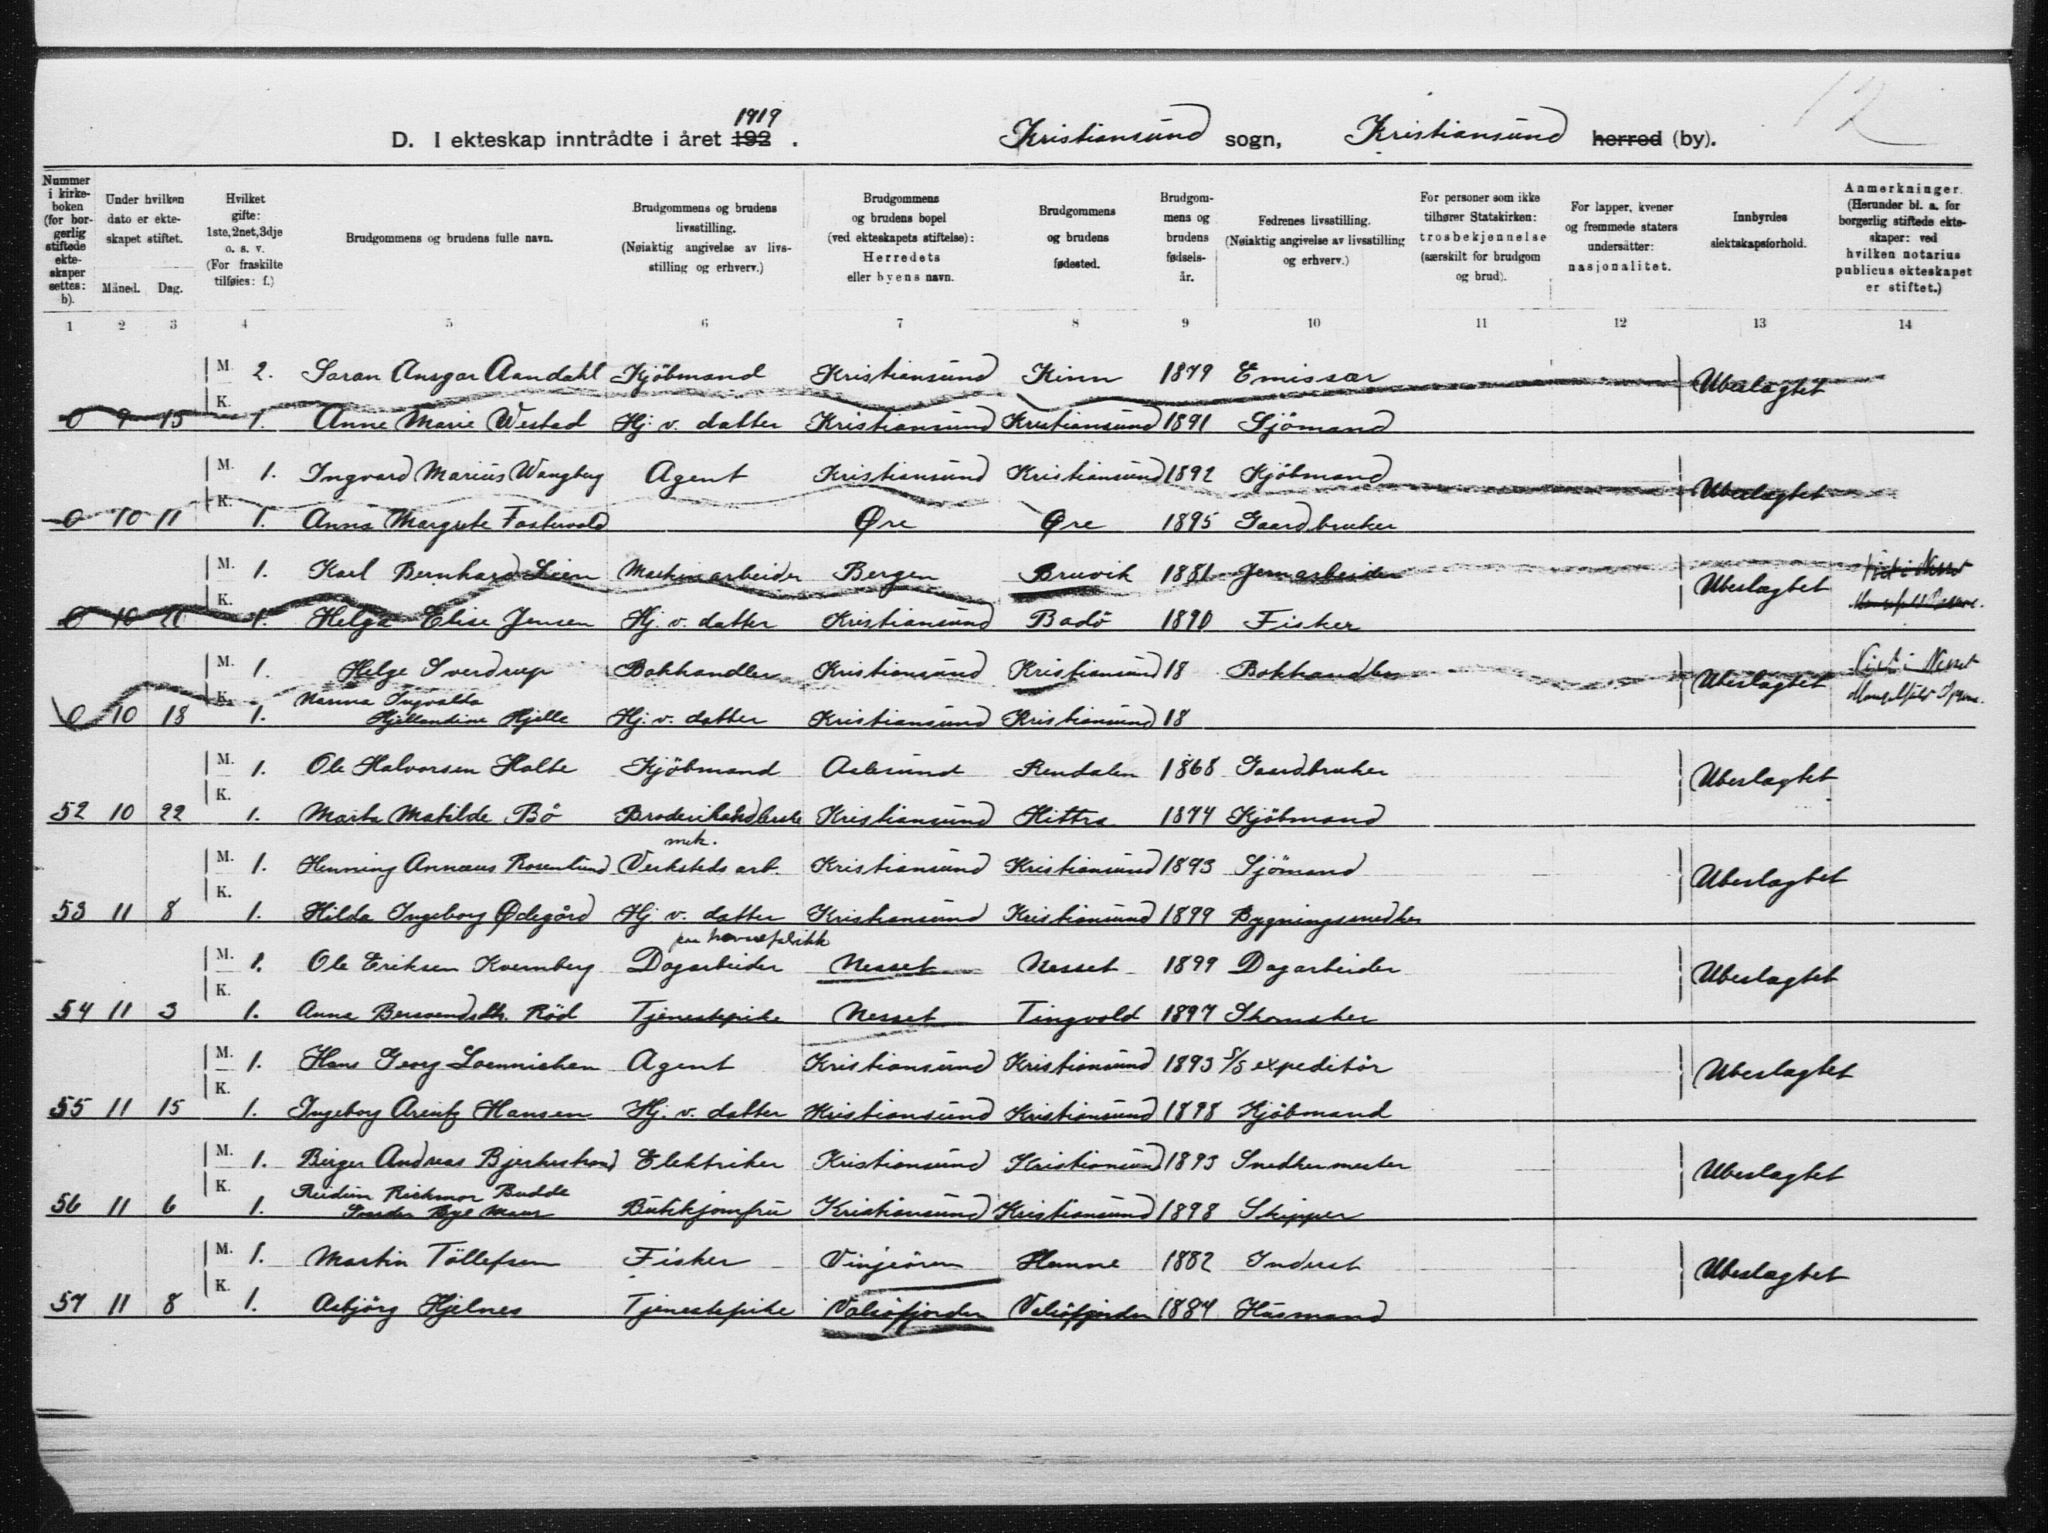 12
1919
D. I ekteskap inntrådte i året 192 . Kristiansund sogn, Kristiansund herred (by).
Nummer i kirke-boken (for bor-gerlig stiftede ekte-skaper settes: b).
Under hvilken dato er ekte-skapet stiftet.
Måned. Dag.
Hvilket gifte: 1ste, 2net, 3dje o. s. v. (For fraskilte tilføies: f.)
Brudgommens og brudens fulle navn.
Brudgommens og brudens livsstilling. (Nøiaktig angivelse av livs-stilling og erhverv.)
Brudgommens og brudens bopel (ved ekteskapets stiftelse): Herredets eller byens navn.
Brudgommens og brudens fødested.
Brudgom-mens og brudens fødsels-år.
Fedrenes livsstilling. (Nøiaktig angivelse av livsstilling og erhverv.)
For personer som ikke tilhører Statskirken: trosbekjennelse (særskilt for brudgom og brud).
For lapper, kvener og fremmede staters undersåtter: nasjonalitet.
Innbyrdes slektskapsforhold.
Anmerkninger. (Herunder bl. a. for borgerlig stiftede ekte-skaper: ved hvilken notarius publicus ekteskapet er stiftet.)
1 2 3 4 5 6 7 8 9 10 11 12 13 14
M. 2. Saran Ansgar Aandahl Kjöbmand Kristiansund Kinn 1879 Emissær Ubeslagtet
K.
0 9 15 1. Anne Marie Westad Hj. v. datter Kristiansund Kristiansund 1891 Sjömand
M. 1. Ingvard Marius Wangberg Agent Kristiansund Kristiansund 1892 Kjöbmand Ubeslagtet
K.
0 10 11 1. Anna Margrete Fostervold Øre Øre 1895 Gaardbruker
M. 1. Karl Bernhard Lien Maskinarbeider Bergen Bruvik 1881 Jernarbeider Ubeslagtet
K.
0 10 1. Helga Elise Jensen Hj. v. datter Kristiansund Bodö 1890 Fisker
M. 1. Helge Sverdrup Bokhandler Kristiansund Kristiansund 18 Bokhandler Ubeslagtet Viet i Nesset
K. Nanna Ingvalda
0 10 18 1. Hjellandine Hjelle Hj. v. datter Kristiansund Kristiansund 18
M. 1. Ole Halvorsen Holte Kjöbmand Aalesund Rendalen 1868 Gaardbruker Ubeslagtet
K.
52 10 22 1. Marta Matilde Bö Broderihandlerske Kristiansund Hittra 1874 Kjöbmand
mek.
M. 1. Henning Annæus Rosenlund Verksteds arb. Kristiansund Kristiansund 1893 Sjömand Ubeslagtet
K.
53 11 8 1. Hilda Ingeborg Ødegård Hj. v. datter Kristiansund Kristiansund 1899 Bygningssnedker
M. 1. Ole Eriksen Kvernberg Dagarbeider Nesset Nesset 1899 Dagarbeider Ubeslagtet
K.
54 11 3 1. Anna Bersvendsdtr. Röd Tjenestepike Nesset Tingvold 1897 Skomaker
M. 1. Hans Georg Loennichen Agent Kristiansund Kristiansund 1893 S/S expeditör Ubeslagtet
K.
55 11 15 1. Ingeborg Arentz Hansen Hj. v. datter Kristiansund Kristiansund 1898 Kjöbmand
M. 1. Birger Andreas Bjerkestrand Elektriker Kristiansund Kristiansund 1893 Snedkermester Ubeslagtet
K. Reidun Rickmor Budde
56 11 6 1. Butikkjomfru Kristiansund Kristiansund 1898 Skipper
M. 1. Martin Töllefsen Fisker Vinjeören Hemne 1882 Inderst Ubeslagtet
K.
57 11 8 1. Asbjörg Hjelnes Tjenestepike Valsöfjorden Valsöfjorden 1884 Husmand